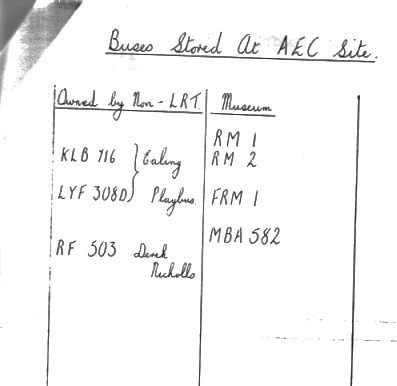 Buses Stored At AEC Site.
Owned by Non-LRT
KLB 716 } Ealing
LYF 308D } Playbus
RF 503 Derek
Nicholls
Museum
RM 1
RM 2
FRM 1
MBA 582